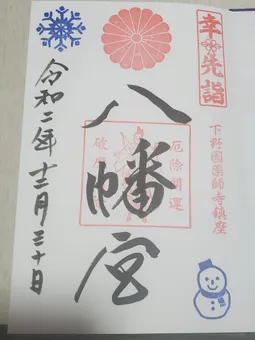 幸先詣
下野國薬師寺鎮座
八幡宮
厄除開運
破魔
令和二年十二月三十日